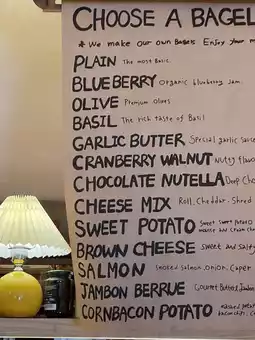 CHOOSE A BAGEL
* We make our own Bagels Enjoy your m
PLAIN The most Basic
BLUEBERRY Organic blueberry Jam
OLIVE Premium olives
BASIL The rich taste of Basil
GARLIC BUTTER Special garlic sauce
CRANBERRY WALNUT Nutty flavor
CHOCOLATE NUTELLA Deep Cho
CHEESE MIX Roll. Cheddar. Shred
SWEET POTATO Sweet Sweet Potato
BROWN CHEESE Sweet and Salty
SALMON Smoked salmon, Onion, Caper
JAMBON BERRUE Gourmet Butter, Jambon
CORNBACON POTATO mashed potato